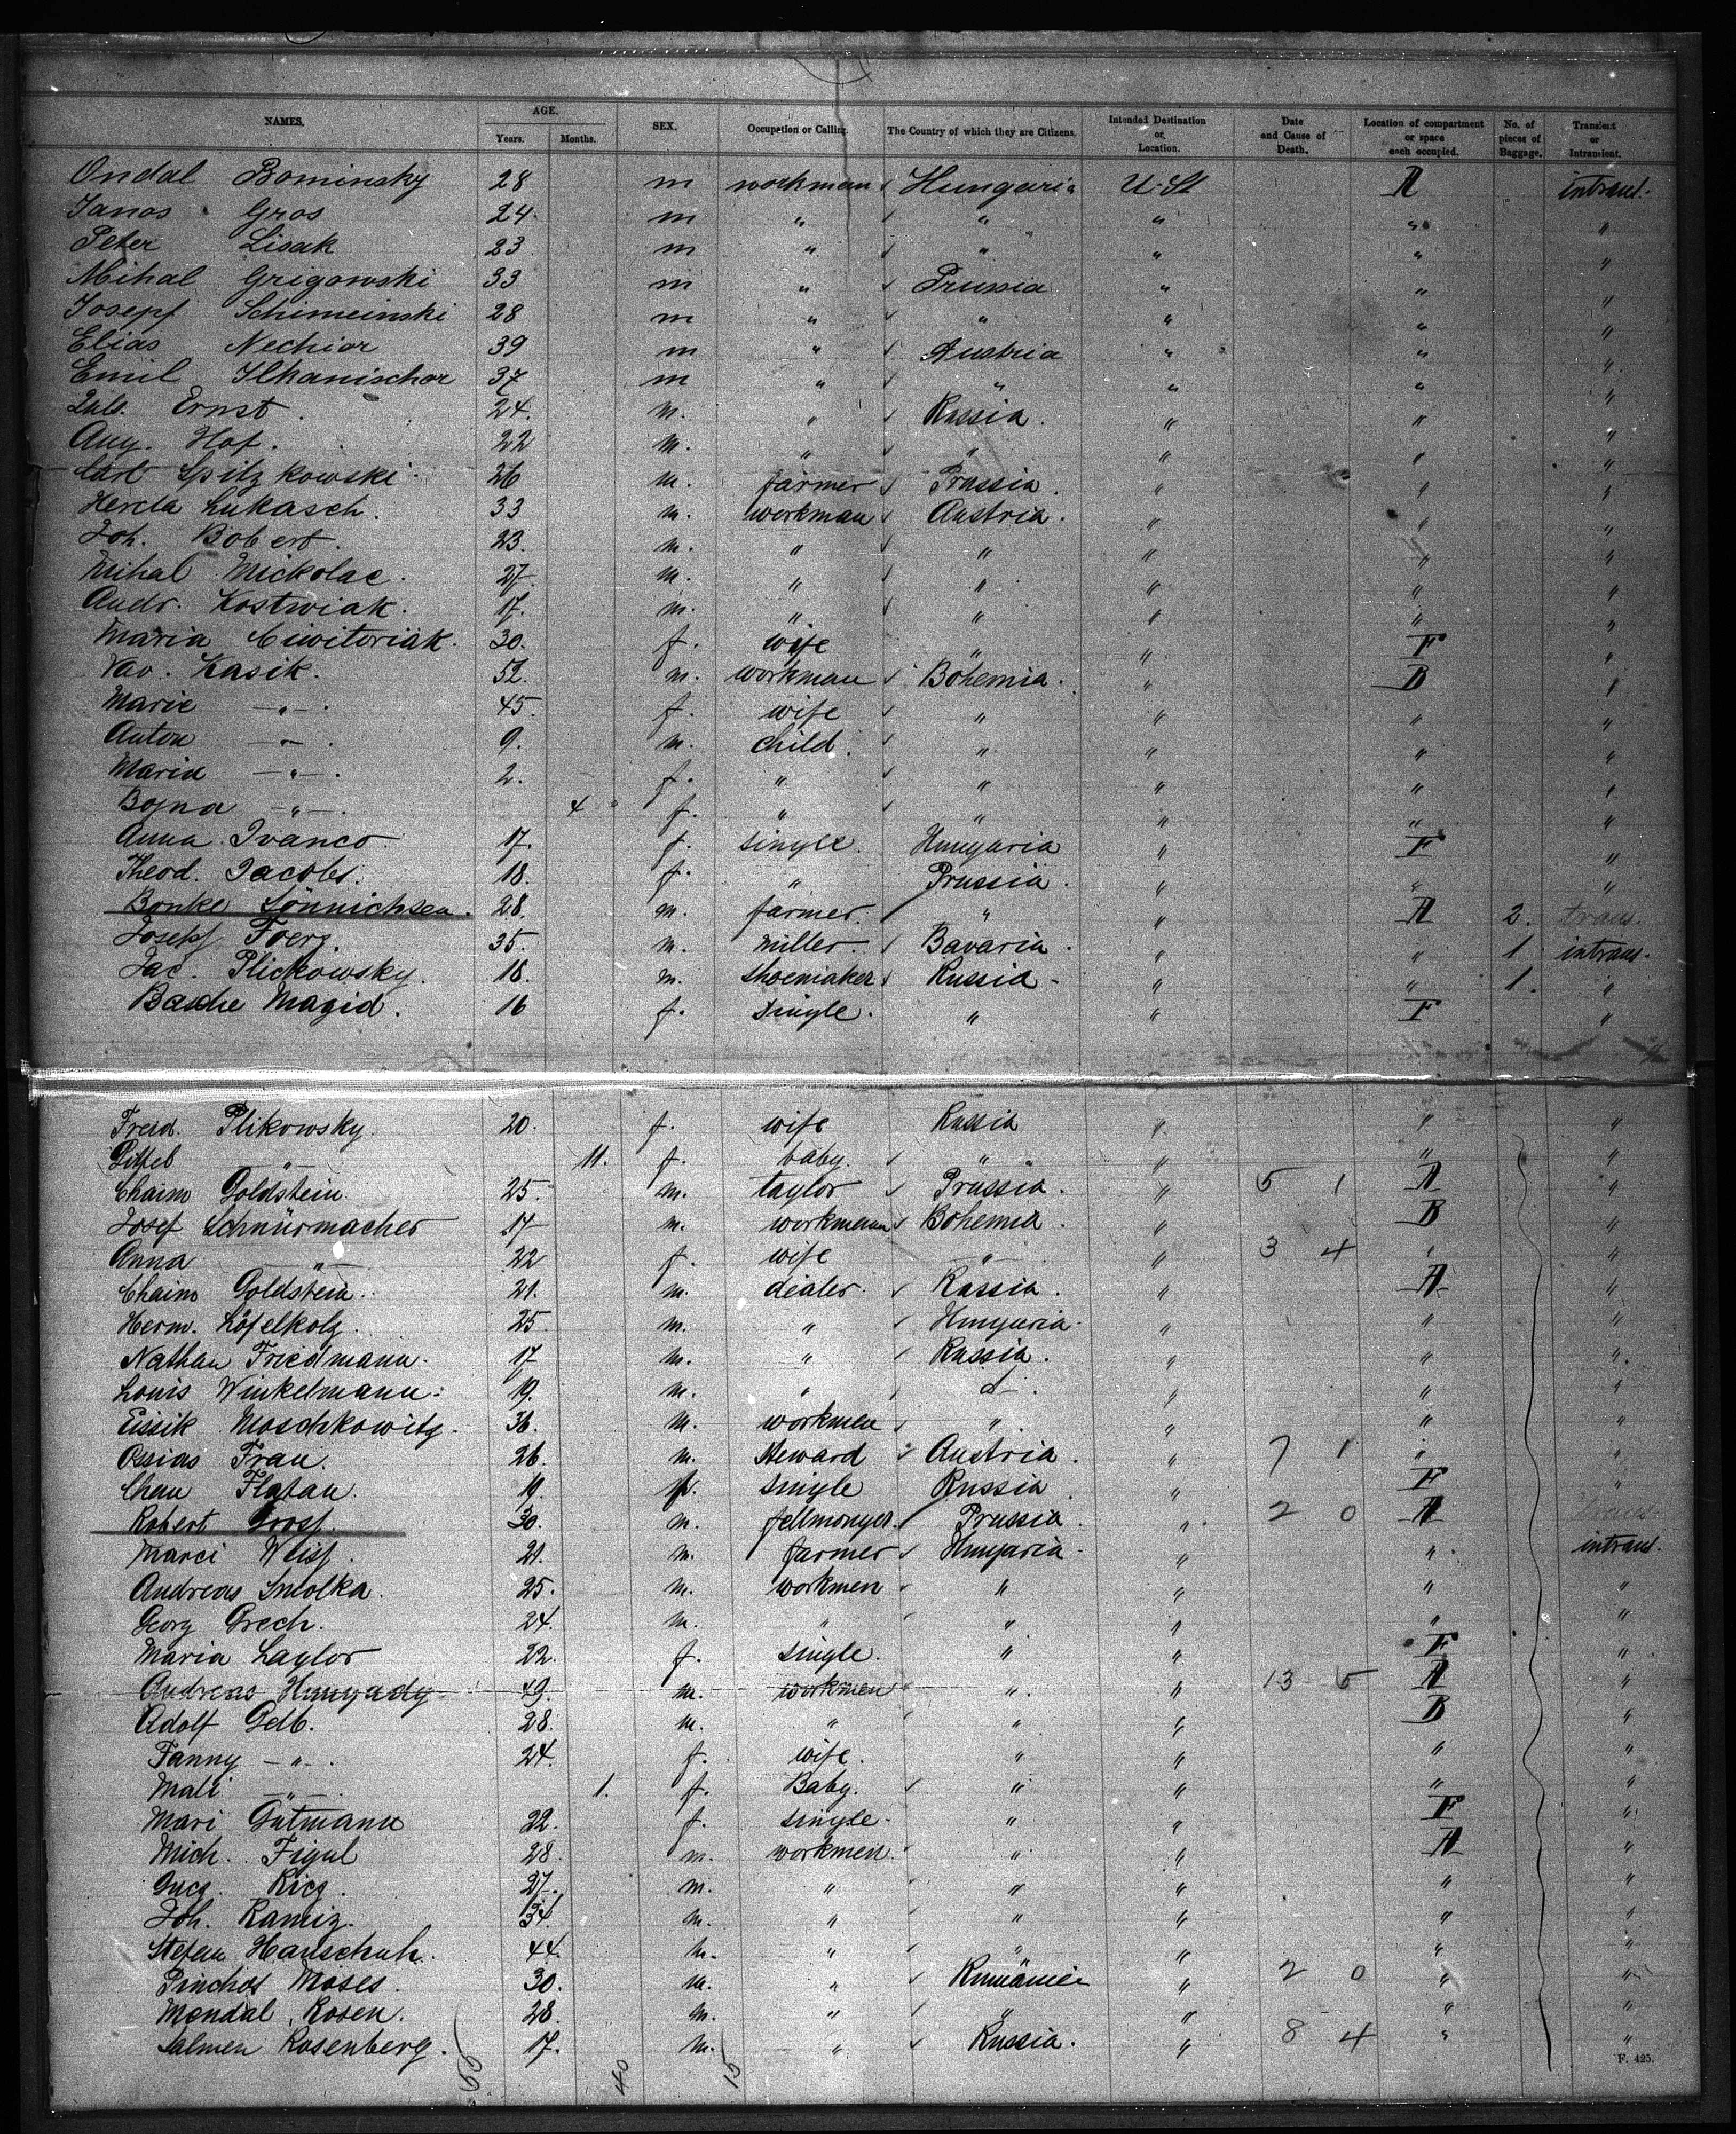 NAMES. AGE. Years. Months. SEX. Occupation or Calling. The Country of which they are Citizens. Intended Destination or Location. Date and Cause of Death. Location of compartment or space each occupied. No. of pieces of Baggage. Transient or Intransient.
Ondal Bominsky 28 m workman Hungaria U. St A intrans.
Janos Gros 24. m " " " " "
Peter Lisak 23 m " " " " "
Mihal Grigowski 33 m " Prussia " " "
Josepf Schimeinski 28 m " " " " "
Elias Nechiar 39 m " Austria " " "
Emil Ilhanischar 37 m " " " " "
Ernst 24. m. " Russia. " " "
Aug. Hof. 22 m. " " " " "
Carl Spitzkowski 26 m. farmer Prussia. " " "
Hercla Lukasch. 33 m. workman Austria. " " "
Joh. Bobert. 23. m. " " " " "
Mihal Mickolac. 27. m. " " " " "
Andr. Kostwiak. 17. m. " " " " "
Maria Ciwitoriak. 30. f. wife " " F "
Vav. Kasik. 52. m. workman Bohemia. " B "
Marie -"-. 45. f. wife " " " "
Anton -"-. 9. m. child. " " " "
Maria -"-. 2. f. " " " " "
Bojna -"-. 4 f. " " " " "
Anna Ivanco. 17. f. single. Hungaria " F "
Theod. Jacobs. 18. f. " Prussia. " " "
Bonke Sönnichsen. 28. m. farmer. " " A 2. trans.
Josepf Foerg. 35. m. miller. Bavaria. " " 1 intrans.
Jac. Plickowsky. 18. m. shoemaker Russia - " " 1. "
Basche Magid. 16 f. single. " " F "
Freid. Plikowsky. 20. f. wife Russia " " "
Gittel -"- 11. f. baby. " " " "
Chaim Goldstein 25. m. taylor Prussia. " 5 1 A "
Josef Schnürmacher 17 m. workmann Bohemia. " B "
Anna -"- 22 f. wife -"- " 3 4 " "
Chaim Goldstein. 21. m. dealer. Russia. " A "
Herm. Löfelholz. 25. m. " Hungaria. " " "
Nathan Friedmann. 17 m. " Russia. " " "
Louis Winkelmann. 19. m. " d-. " " "
Eissik Moschkowitz. 36. m. workmen " " " "
Ossias Frau. 26. m. Steward Austria. " 7 1 " "
Chau Flatau. 19. f. single Russia. " F "
Robert Grosf. 30. m. fellmonger. Prussia. " 2 0 A trans
Marci Weisf. 21. m. farmer Hungaria - " " intrans.
Andreas Smolka. 25. m. workmen " " " "
Georg Grech. 24. m. " " " " "
Maria Laylor 22. f. single. " " F "
Andreas Hunyady 49. m. workmen " " 13 5 A "
Adolf Gelb. 28. m. " " " B "
Fanny -"-. 24. f. wife. " " " "
Mali -"- 1. f. Baby. " " " "
Mari Gutmann 22. f. single. " " F "
Mich. Figul 28. m. workmen. " " A "
Ricz. 27. m. " " " " "
Joh. Ramiz. 34. m. " " " " "
Stefan Hanschuh. 44. m. " " " " "
Pinchos Moses. 30. m. " Rumänien " 2 0 " "
Mendal Rosen. 28. m. " " " " "
Salmen Rosenberg. 17. m. " Russia. " 8 4 " "
F. 425.
40 15